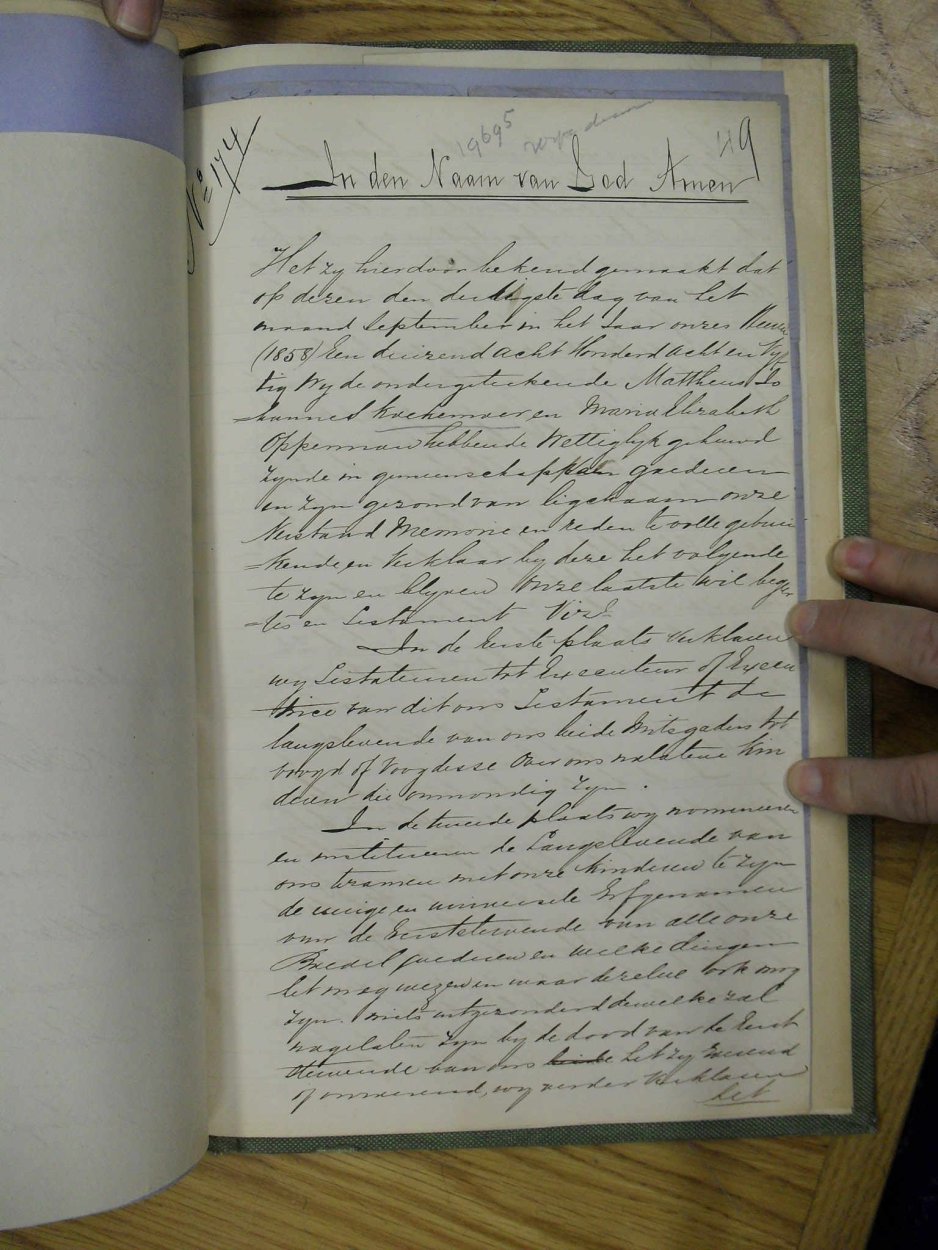 No 174
19695
49
In den Naam van God Amen
Het zy hierdoor bekend gemaakt dat
op dezen den dertigste dag van het
maand September in het Jaar onzes Heeren
(1858) Een duizend Acht Honderd Acht en Vyf
tig Wy de ondergeteekende Mattheus Jo
=hannes Koekemoer en Maria Elizabeth
Opperman hebbende Wettiglyk gehuwd
Zynde in gemeenschap van goederen
en zyn gezond van ligchaam onze
Verstand Memorie en reden te volle gebrui
=kende en Verklaar by deze het volgende
te zyn en blyven onze laatste wil begeer
=tes en Testament Vizt
In de Eerste plaats Verklaren
wy Testateuren tot Executeur of Execu
trice van dit ons Testament de
langslevende van ons beide mitsgaders tot
voogd of Voogdesse over ons nalatene kin
deren die onmondig Zyn.
In de tweede plaats wy nomineeren
en institueeren de Langslevende van
ons tezamen met onze kinderen te zyn
de eenige en universele Erfgenamen
van de Eerststervende van alle onze
Boedel goederen en welke dingen
het mag wezen en waar dezelve ook mag
zyn. niets uitgezonderd dewelke zal
nagelaten zyn by de dood van de Eerst
stervende van ons het zy roerend
of onroerend, wy verder Verklaren
het